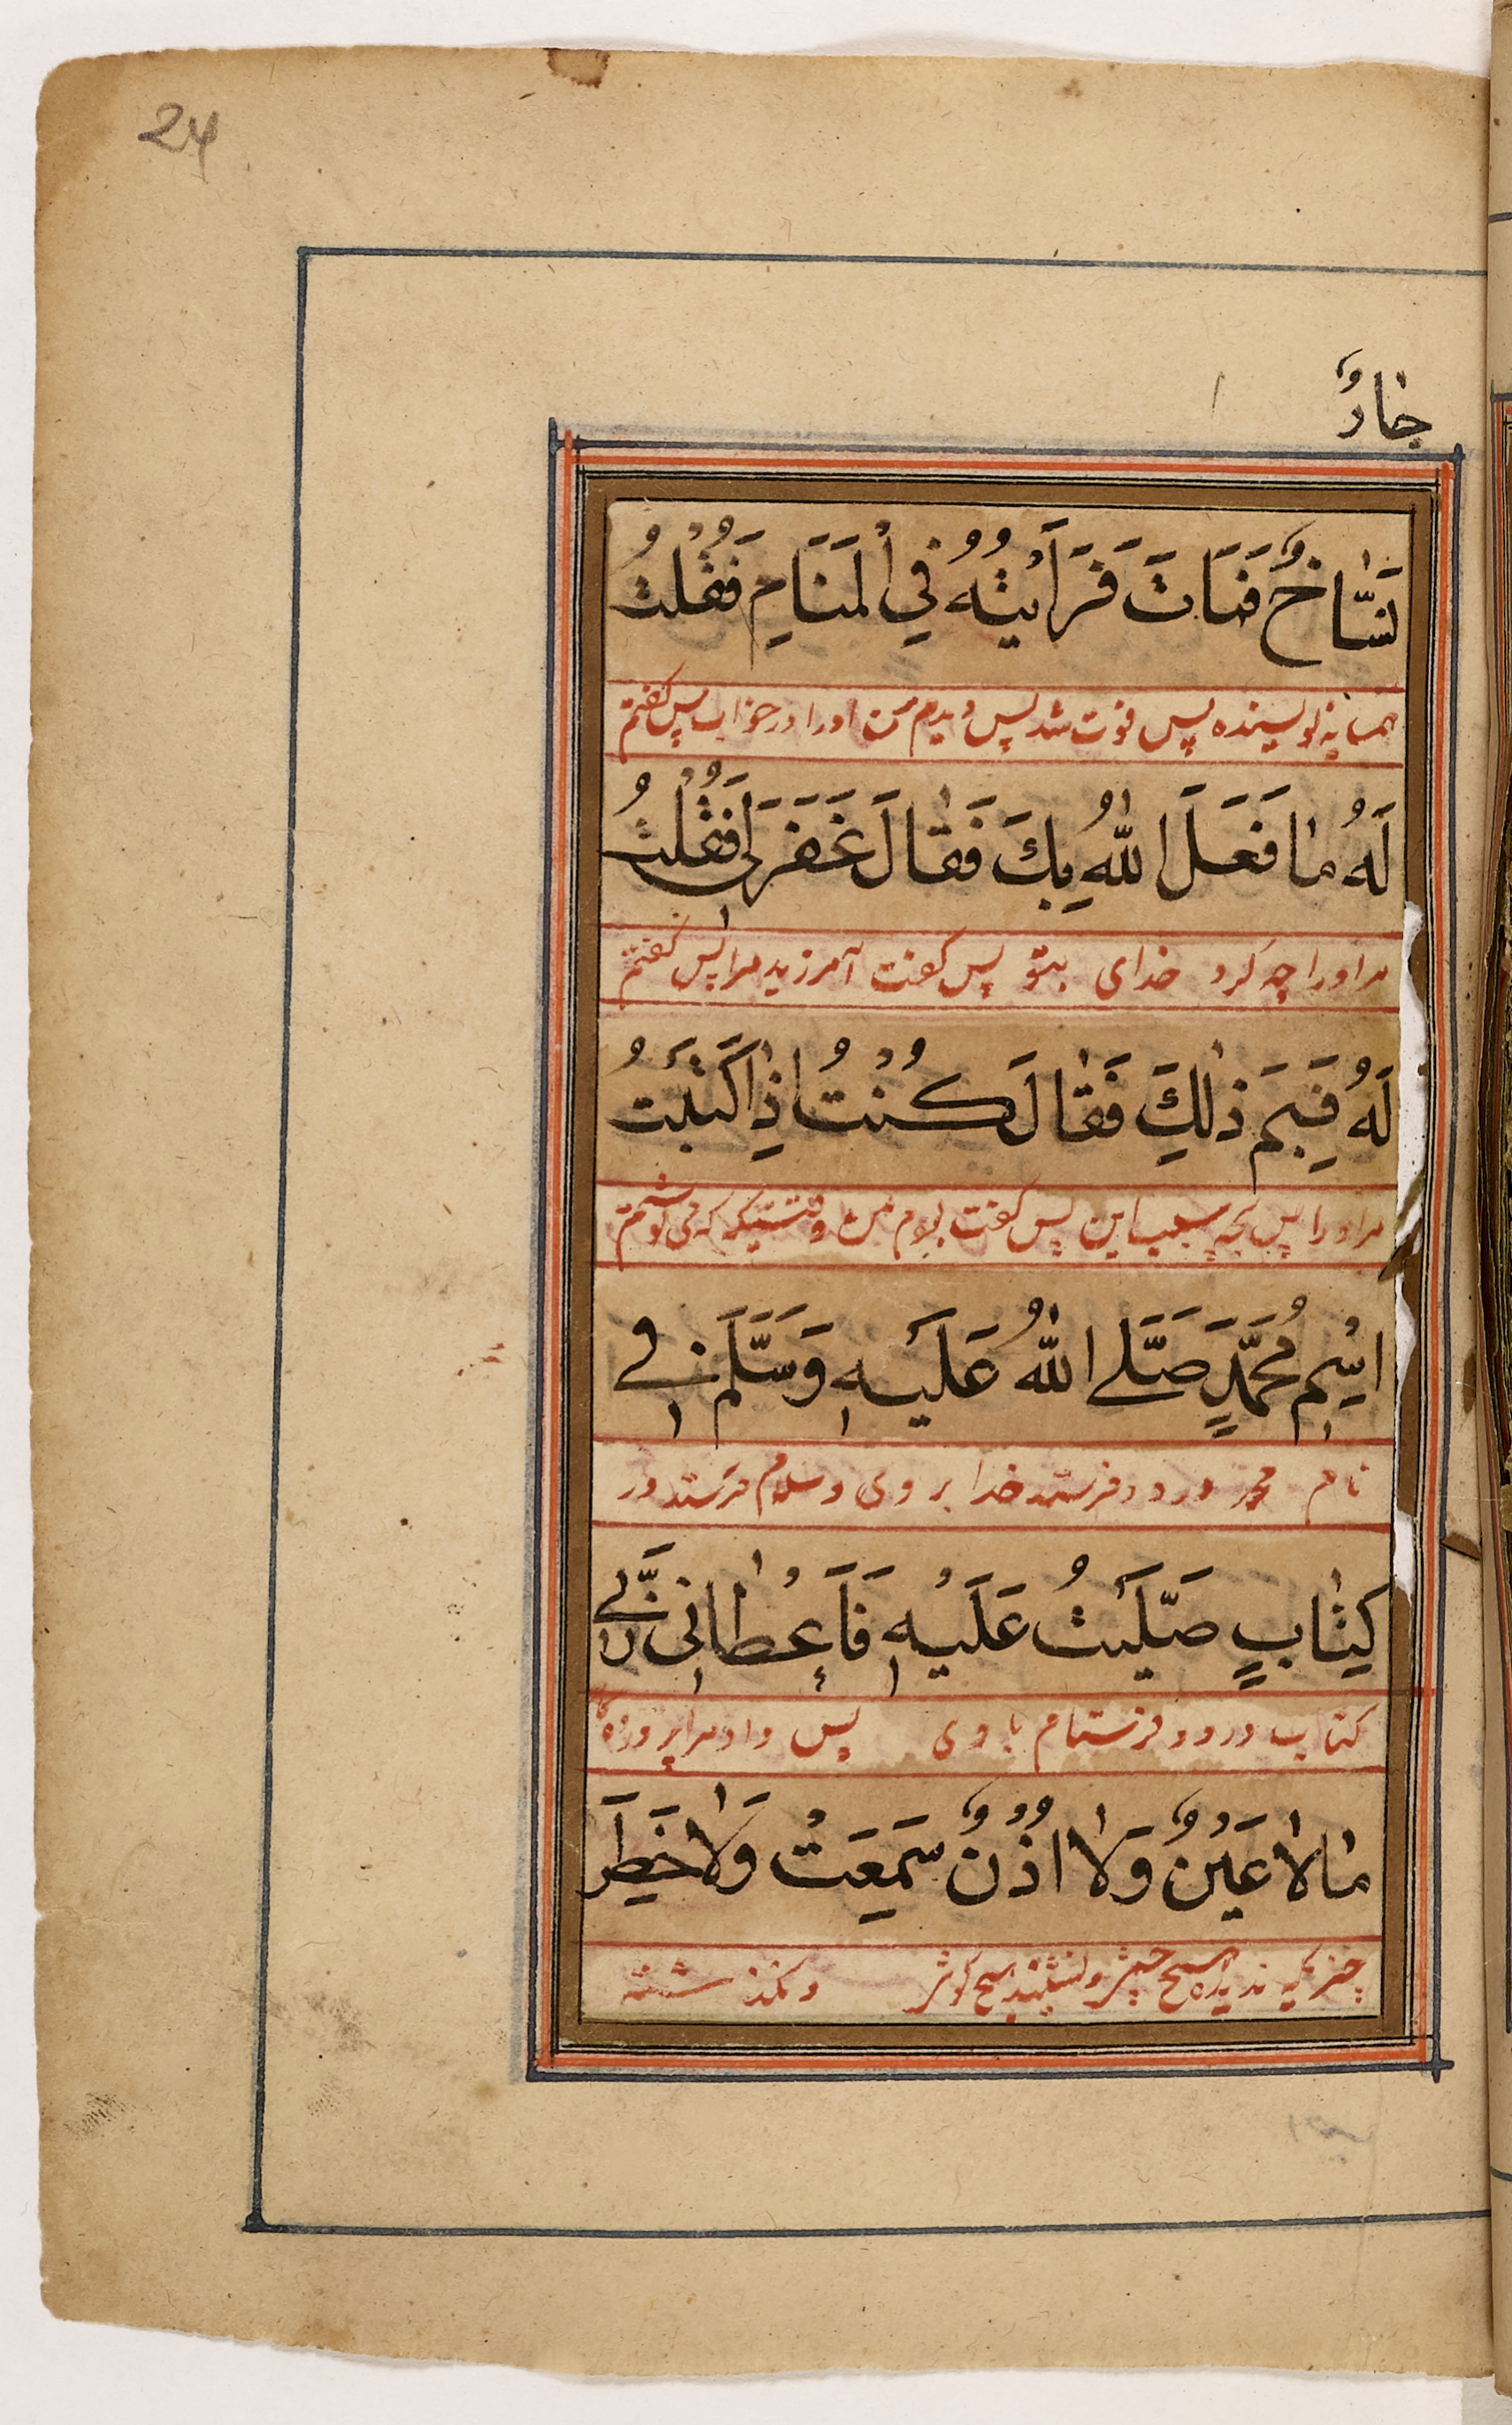 24
جَارٌ
نَسَّاخٌ فَمَاتَ فَرَأَيْتُهُ فِي الْمَنَامِ فَقُلْتُ
همسایه نویسنده پس فوت شد پس دیدم من اورا در خواب پس گفتم
لَهُ مَا فَعَلَ اللّٰهُ بِكَ فَقَالَ غَفَرَ لِي فَقُلْتُ
مر اورا چه کرد خدای بتو پس گفت آمرزید مرا پس گفتم
لَهُ فَبِمَ ذٰلِكَ فَقَالَ كُنْتُ اِذَا كَتَبْتُ
مر اورا پس بچه سبب این پس گفت بودم من وقتیکه که می نوشتم
اسْمِ مُحَمَّدٍ صَلَّے اللّٰهُ عَلَيْهِ وَسَلَّمَ فِے
نام محمد درود فرستد خدا بر وی و سلام فرستد در
كِتَابٍ صَلَّيْتُ عَلَيْهِ فَاَعْطَانِي رَبِّے
کتاب درود فرستام با وی پس داد مرا پروردگا
مَا لَا عَيْنٌ وَلَا اُذُنٌ سَمِعَتْ وَلَا خَطَرَ
چیز یکه ندیده هیچ چشم و نشنید هیچ گوش و نگذشته